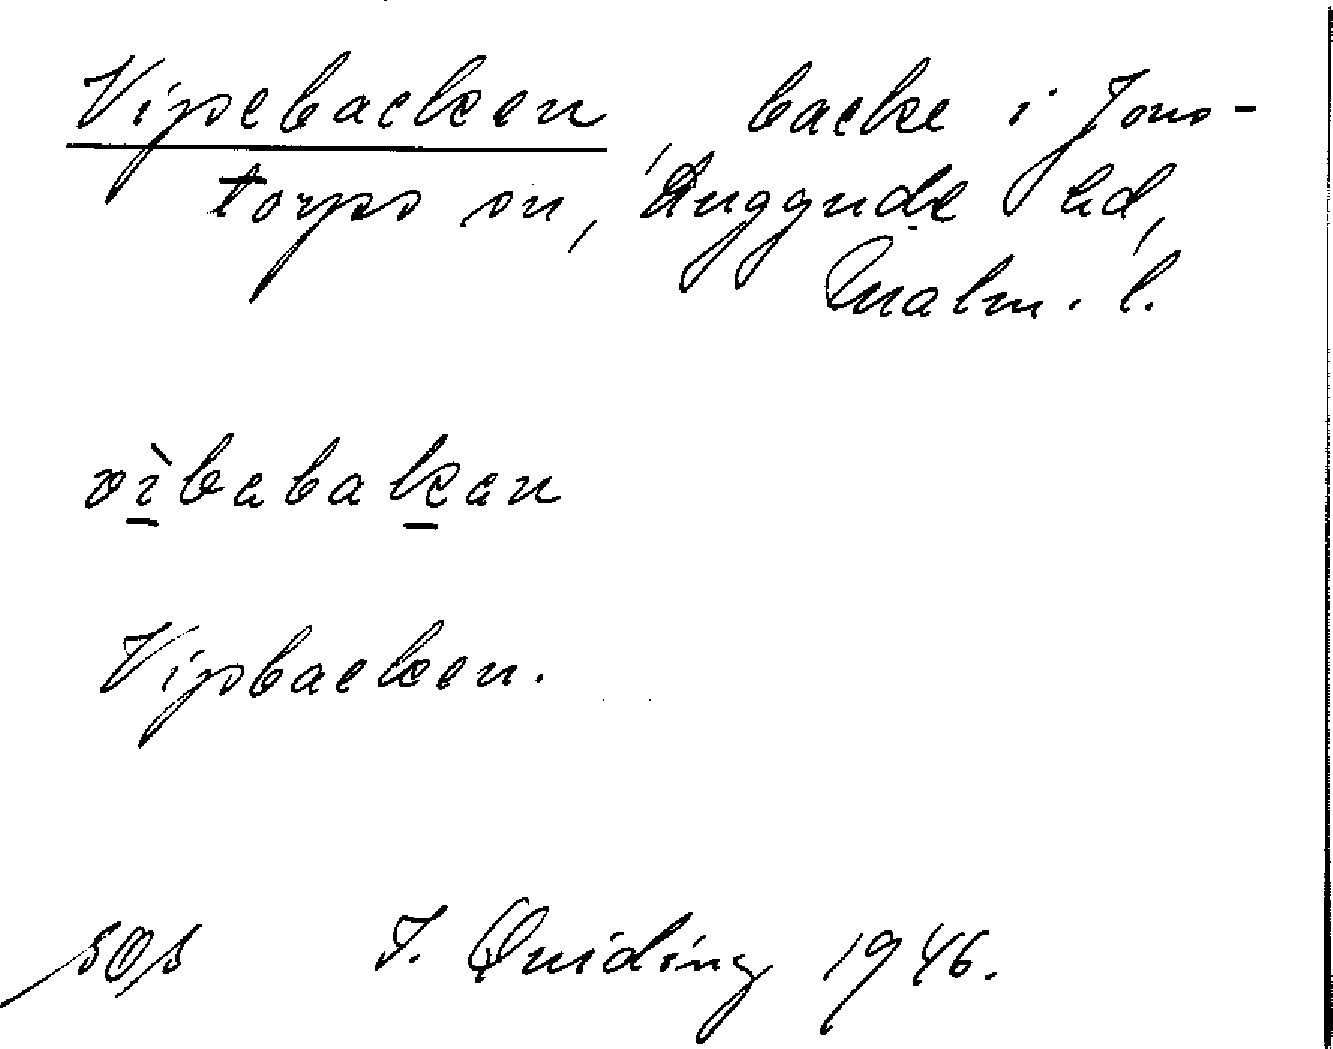 Vipebacken, backe i Jons-
torps sn, Luggude hd,
Malm. l.
vìbabakan
Vipbacken.
T. Quiding 1946.